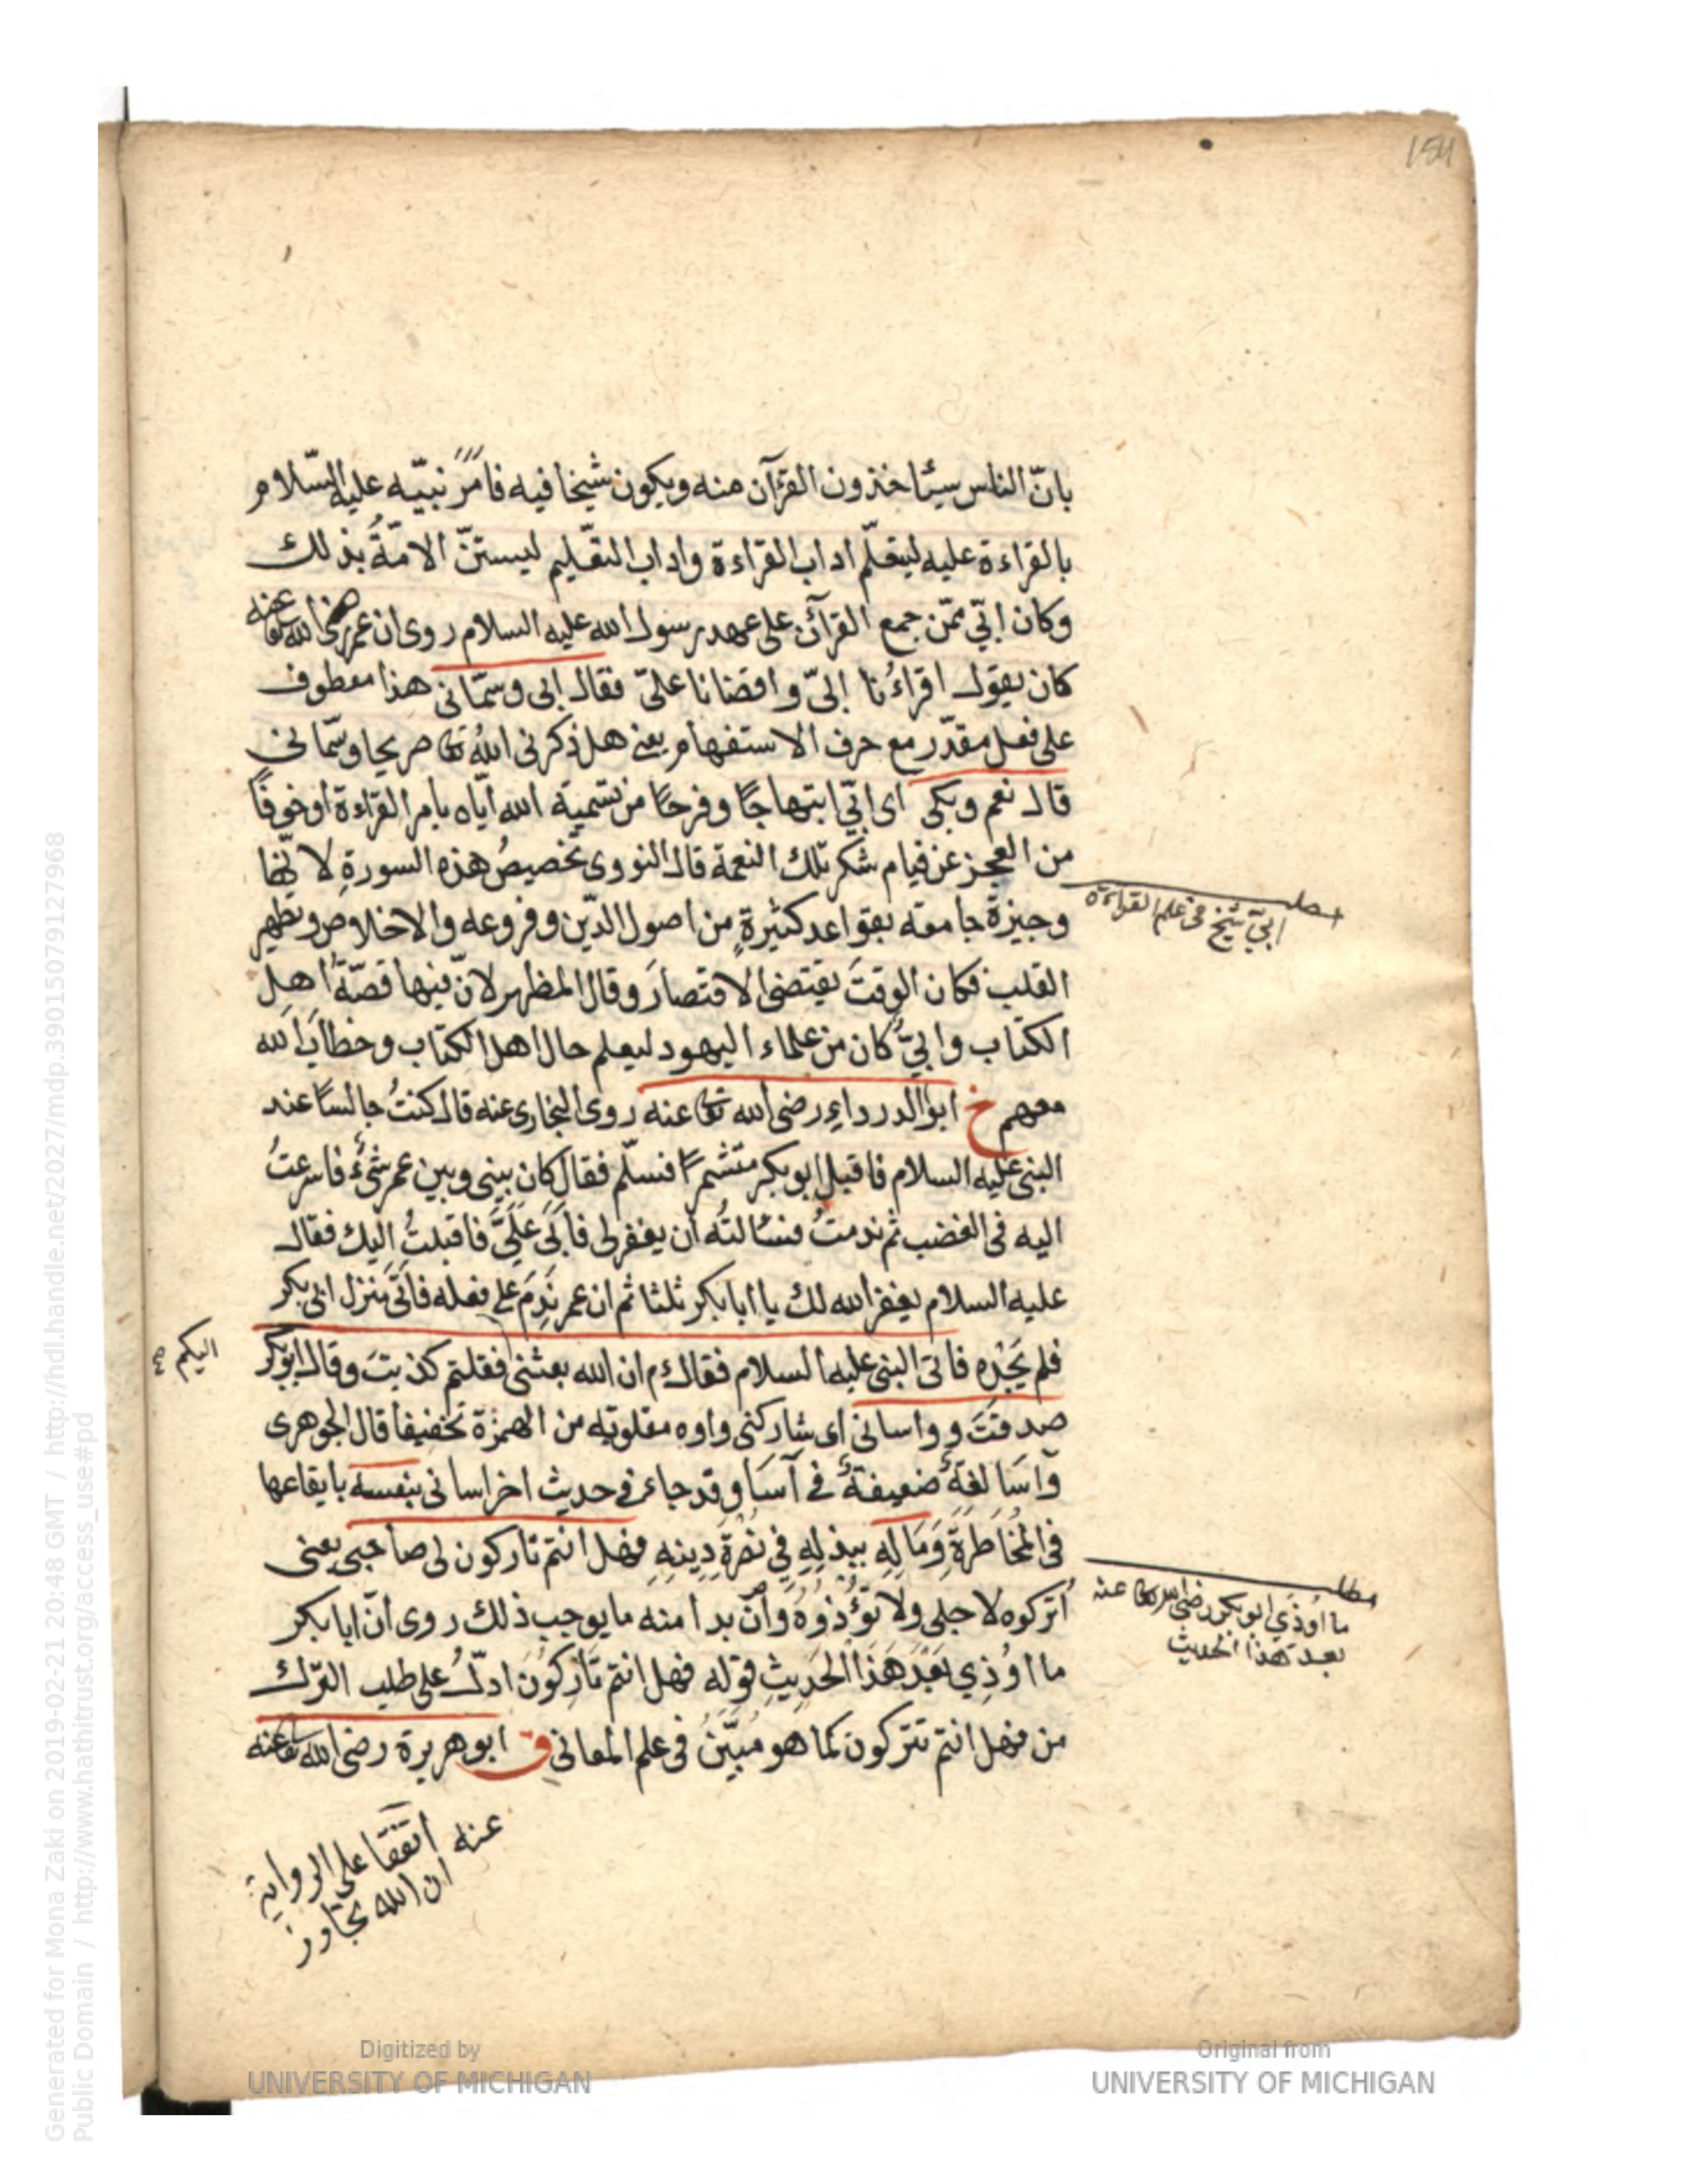 154
بانّ الناس سيئاخذون القرآن منه ويكون شيخا فيه فامر نبيّه عليه السّلام
بالقراءة عليه ليتعلّم اداب القراءة واداب التعليم ليستنّ الامّةُ بذلك
وكان ابيّ ممّن جمع القرآن على عهد رسول الله عليه السلام روى ان عمر رضى الله تعا عنه
كان يقول اقراءُنا ابيّ واقضانا علىّ فقال ابى وسمّانى هذا معطوف
على فعل مقدّر مع حرف الاستفهام يعنى هل ذكرنى اللهُ تعا صريحا وسمّانى
قال نعم وبكى اى ابيّ ابتهاجًا وفرحًا من تسمية الله ايّاه بامر القراءة اوخوفًا
من العجز عن قيام شكر تلك النعمة قال النووى تخصيصُ هذه السورةِ لانّها
وجيزة جامعة بقواعد كثيرةٍ من اصول الدّين وفروعه والاخلاص وتطهير
القلب فكان الوقتَ يقتضى الاقتصارَ وقال المظهر لانّ فيها قصّةُ اهل
الكتاب وابيُّ كان من علماء اليهود ليعلم حال اهل الكتاب وخطابَ الله
معهم خ ابو الدرداءِ رضى الله تعا عنه روى البخارى عنه قال كنتُ جالسًا عند
النبى عليه السلام فاقبل ابو بكر متشمرًا فسلّم فقال كان بينى وبين عمر شئٌ فاسرعتُ
اليه فى الغضب ثم ندمتُ فسئالتُه أن يغفر لى فابَى علَىَّ فاقبلتُ اليك فقال
عليه السلام يغفر الله لك يا ابا بكر ثلثا ثم ان عمر نَدِمَ على فعله فاتَى منزل ابى بكر
فلم يَجِدْهِ فاتى النبى عليه السلام فقال ءم ان الله بعثنى فقلتم كذبتَ وقال ابو بكر
صدقتَ وواسانى اى شاركنى واوه مقلوبة من الهمزة تخفيفا قال الجوهرى
وآسَا لغةٌ ضعيفةٌ فى آسَا وقد جاء فى حديث اخر اسانى بنفسه بايقاعها
فى المُخَاطَرةِ وَمَالِهِ ببذلِهِ فِي نُصْرةِ دِينِهِ فهل انتم تاركون لى صاحبى يعنى
اُتركوه لاجلى ولا تُؤْذُوهُ وأنْ بدا منه ما يوجب ذلك روى انّ ابا بكر
ما اوُذِي بَعْدَ هَذَا الحَدِيثِ قوله فهل انتم تَارِكُونَ ادلُّ على طلب التّرك
من فهل انتم تتركون كما هو مُبَيَّنٌ فى علم المعانى ق ابو هريرة رضى الله تعا عنه
عنه اتّفقا على الرواية
ان الله تجاوز
ابيّ شيخ فى علم القراءة
اليكم صح
مطلـ
ما اوُذي ابو بكر رضى الله تعا عنه
بعد هذا الحديث